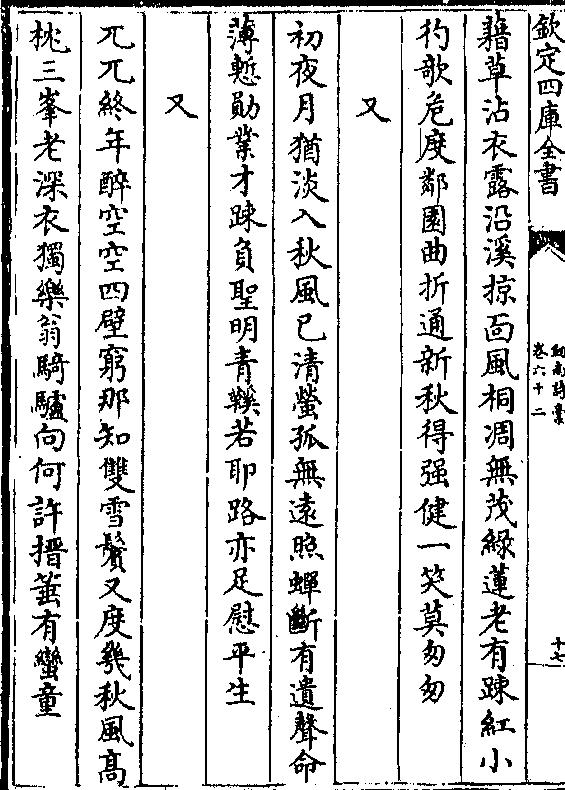 欽定四庫全書
劒南詩稾
卷六十二
十七
藉草沾衣露沿溪掠面風桐凋無茂綠蓮老有踈紅小
彴歌危度鄰園曲折通新秋得强健一笑莫匆匆
又
初夜月猶淡入秋風已清螢孤無遠照蟬斷有遺聲命
薄慙勛業才踈負聖明青鞵若耶路亦足慰平生
又
兀兀終年醉空空四壁窮那知雙雪鬢又度幾秋風髙
枕三峯老深衣獨樂翁騎驢向何許搢䇲有蠻童